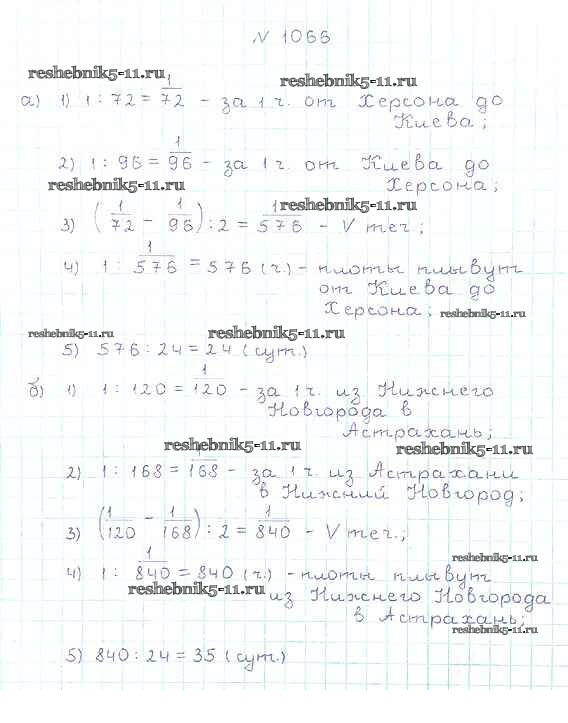 № 1066
reshebnik5-11.ru
reshebnik5-11.ru
а) 1) 1 : 72 = 1/72 - за 1 ч. от Херсона до
Киева;
2) 1 : 96 = 1/96 - за 1 ч. от Киева до
Херсона;
reshebnik5-11.ru
reshebnik5-11.ru
3) (1/72 - 1/96) : 2 = 1/576 - V теч.;
4) 1 : 1/576 = 576 (ч.) - плоты плывут
от Киева до
Херсона;
reshebnik5-11.ru
reshebnik5-11.ru
reshebnik5-11.ru
5) 576 : 24 = 24 (сут.)
б) 1) 1 : 120 = 1/120 - за 1 ч. из Нижнего
Новгорода в
Астрахань;
reshebnik5-11.ru
reshebnik5-11.ru
2) 1 : 168 = 1/168 - за 1 ч. из Астрахани
в Нижний Новгород;
3) (1/120 - 1/168) : 2 = 1/840 - V теч.;
reshebnik5-11.ru
4) 1 : 1/840 = 840 (ч.) - плоты плывут
reshebnik5-11.ru
из Нижнего Новгорода
в Астрахань;
reshebnik5-11.ru
5) 840 : 24 = 35 (сут.)